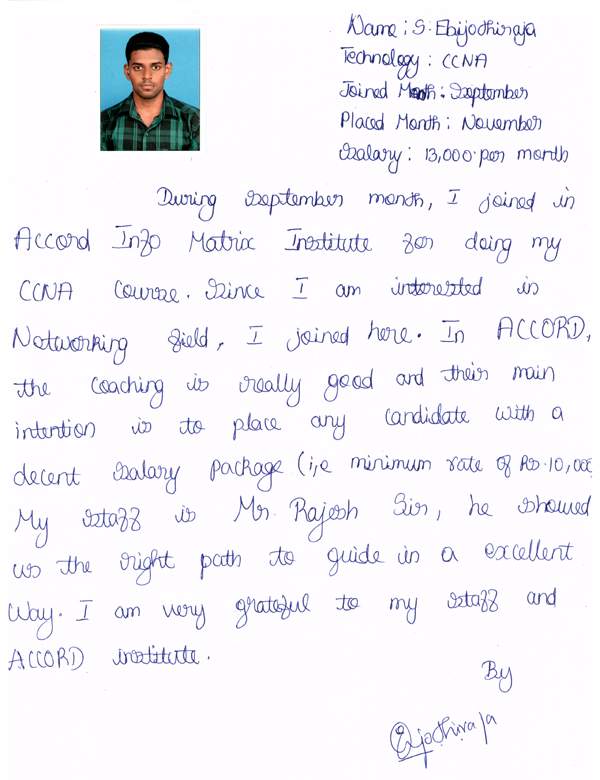 Name : S. Ebijodhiraja
Technology : CCNA
Joined Month : September
Placed Month : November
Salary : 13,000 per month
During September month, I joined in
Accord Info Matrix Institute for doing my
CCNA course. Since I am interested in
Networking field, I joined here. In ACCORD,
the coaching is really good and their main
intention is to place any candidate with a
decent salary package (i,e minimum rate of Rs. 10,000
My staff is Mr. Rajesh Sir, he showed
us the right path to guide in a excellent
way. I am very grateful to my staff and
ACCORD institute.
By
Ebijodhiraja